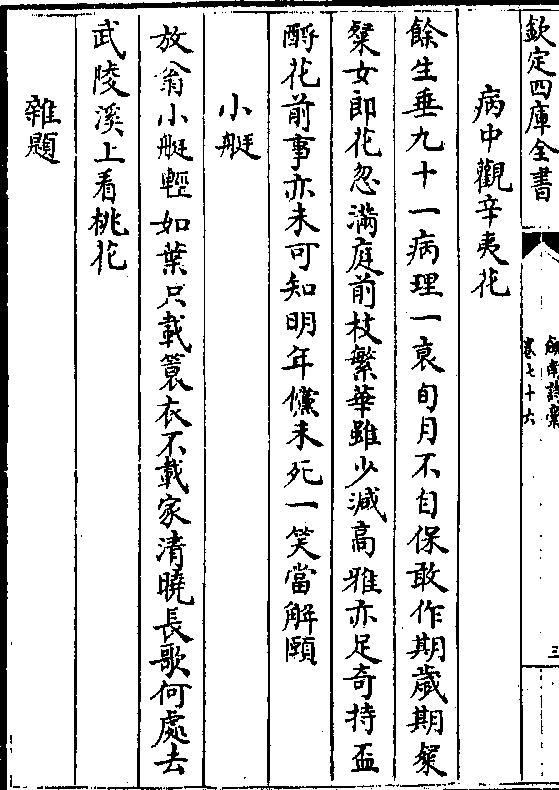 欽定四庫全書
劍南詩稾
卷七十六
三
病中觀辛夷花
餘生垂九十一病理一衰旬月不自保敢作期歲期粲
粲女郎花忽滿庭前枝繁華雖少減高雅亦足奇持盃
酹花前事亦未可知明年儻未死一笑當解頤
小艇
放翁小艇輕如葉只載蓑衣不載家清曉長歌何處去
武陵溪上看桃花
雜題